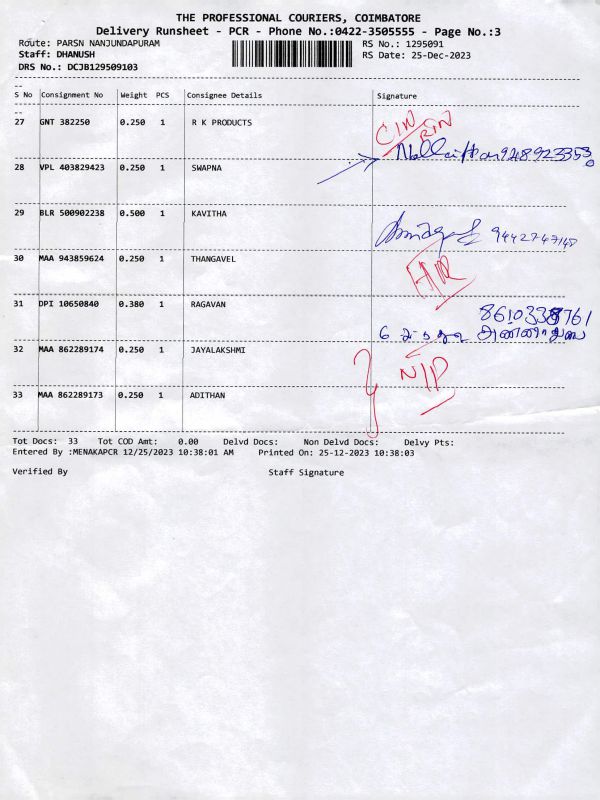 THE PROFESSIONAL COURIERS, COIMBATORE
Delivery Runsheet - PCR - Phone No.:0422-3505555 - Page No.:3
Route: PARSN NANJUNDAPURAM RS No.: 1295091
Staff: DHANUSH RS Date: 25-Dec-2023
DRS No.: DCJB129509103
S No Consignment No Weight PCS Consignee Details Signature
27 GNT 382250 0.250 1 R K PRODUCTS
28 VPL 403829423 0.250 1 SWAPNA
29 BLR 500902238 0.500 1 KAVITHA
30 MAA 943859624 0.250 1 THANGAVEL
31 DPI 10650840 0.380 1 RAGAVAN
32 MAA 862289174 0.250 1 JAYALAKSHMI N/P
33 MAA 862289173 0.250 1 ADITHAN
Tot Docs: 33 Tot COD Amt: 0.00 Delvd Docs: Non Delvd Docs: Delvy Pts:
Entered By :MENAKAPCR 12/25/2023 10:38:01 AM Printed On: 25-12-2023 10:38:03
Verified By Staff Signature